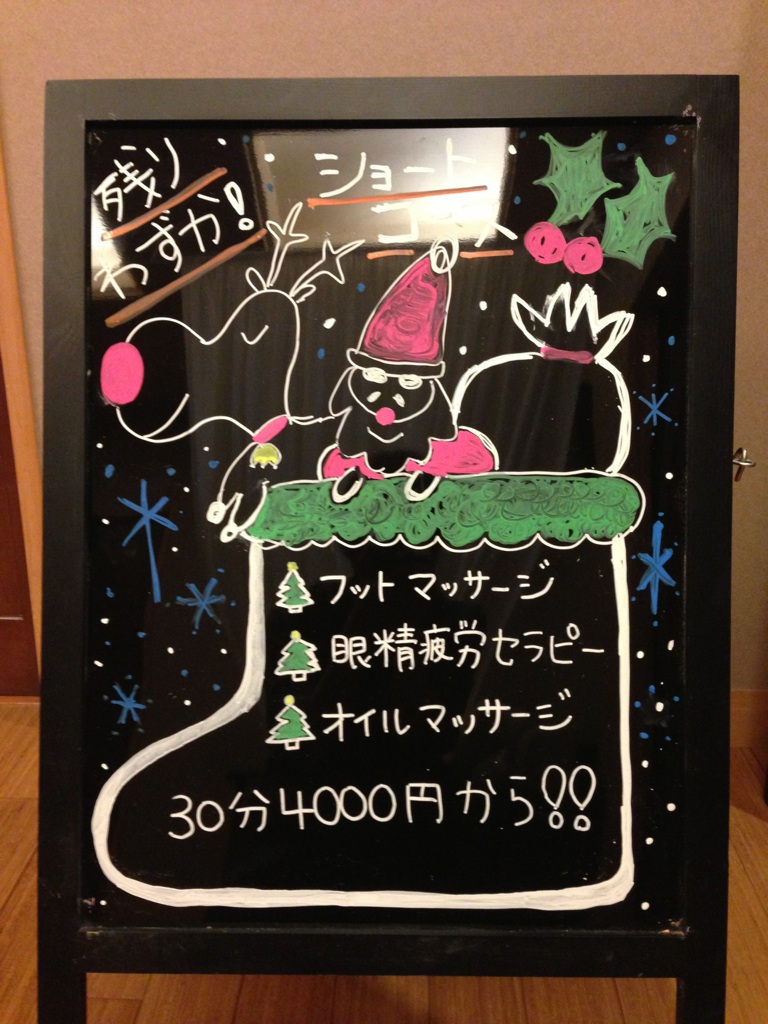 残り
わずか!
ショート
コース
フットマッサージ
眼精疲労セラピー
オイルマッサージ
30分4000円から!!